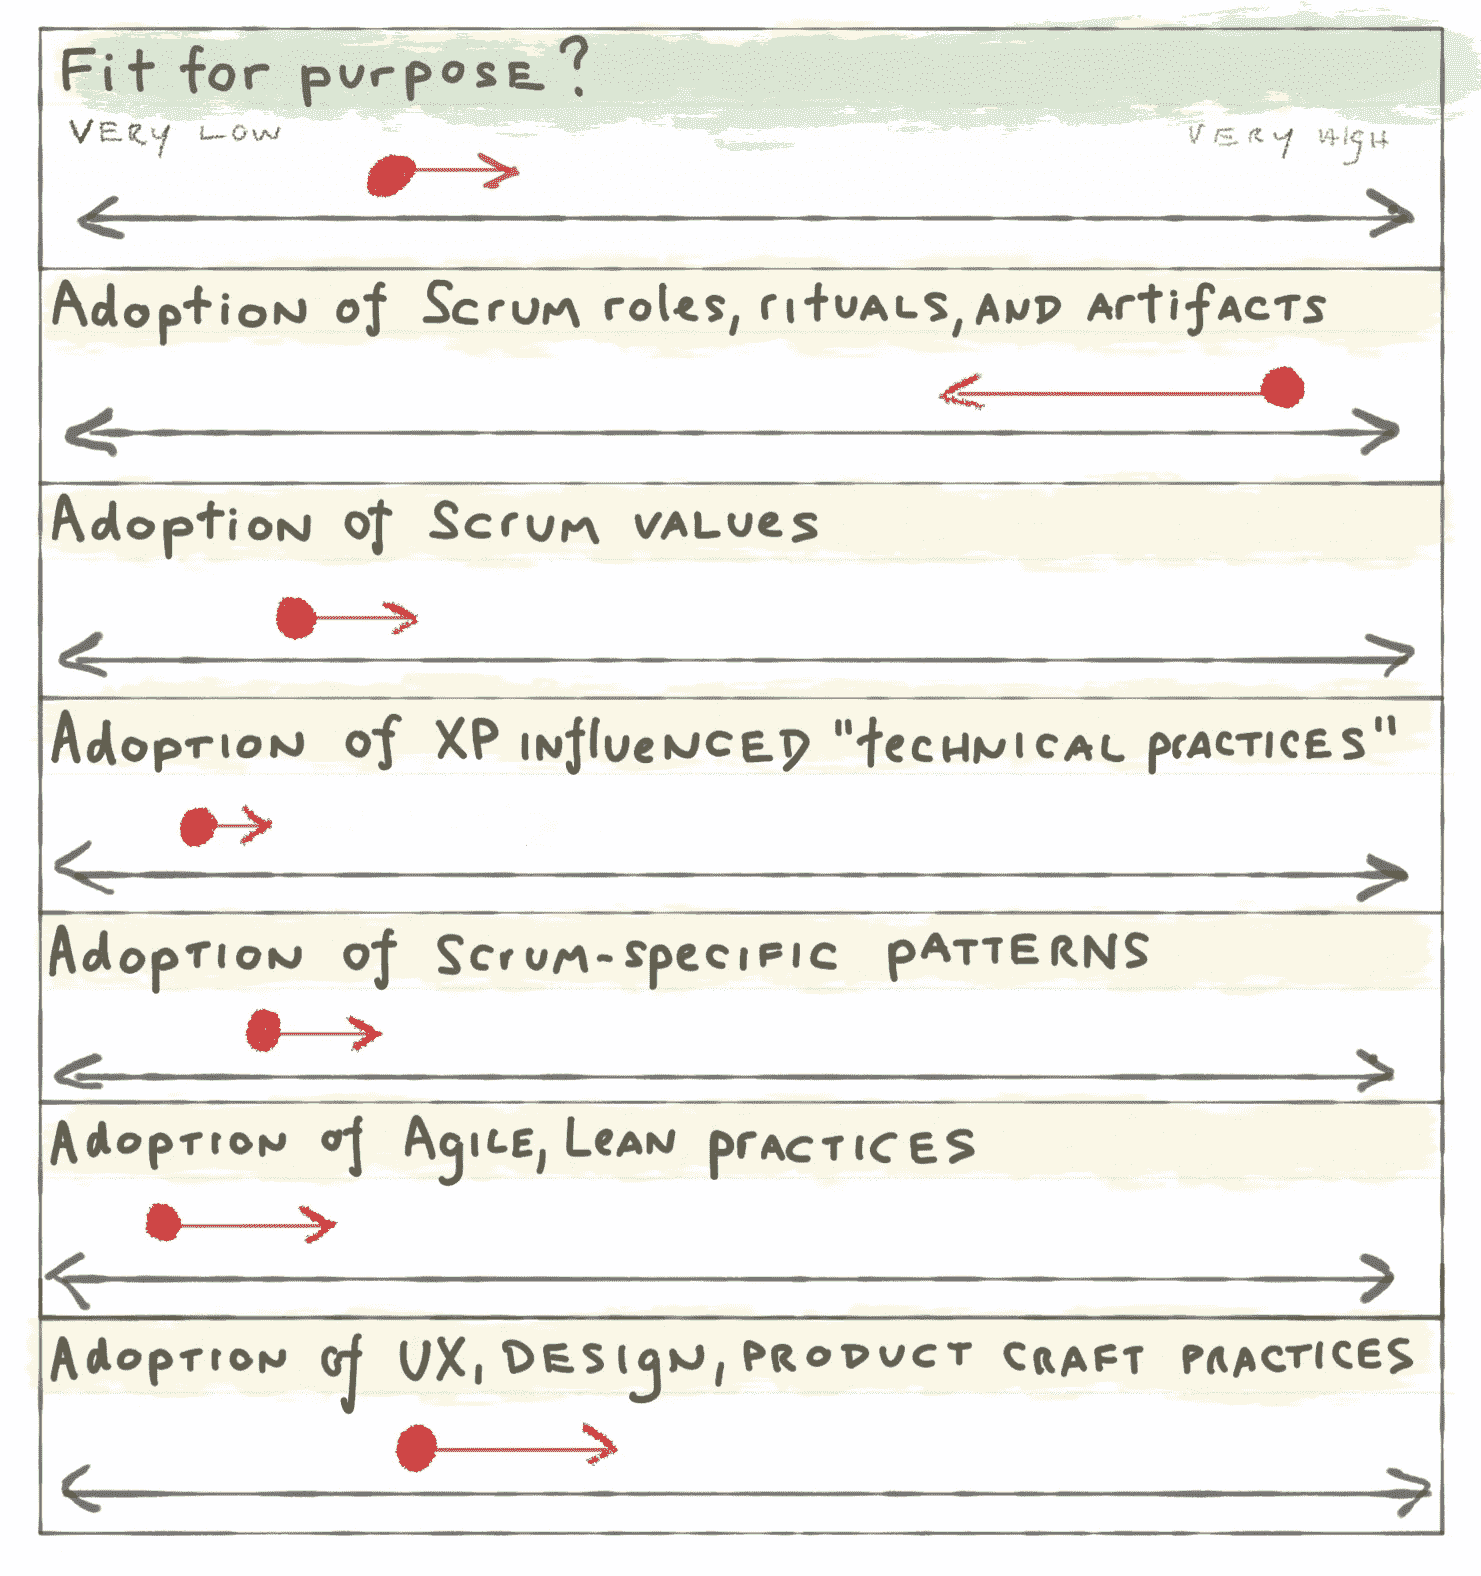 Fit for purpose?
VERY LOW
VERY HIgH
Adoption of Scrum roles, rituals, and artifacts
Adoption of Scrum values
Adoption of XP influenced "technical practices"
Adoption of Scrum-specific patterns
Adoption of Agile, Lean practices
Adoption of UX, Design, Product Craft Practices